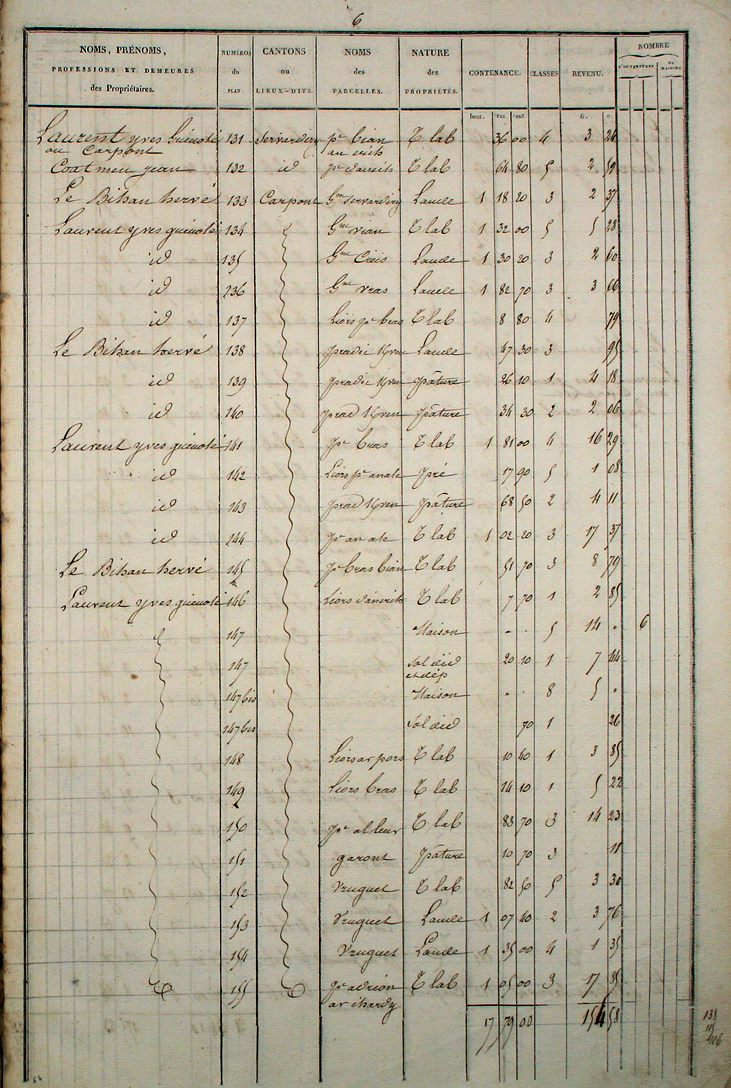 6
NOMS, PRÉNOMS, PROFESSIONS ET DEMEURES des Propriétaires. NUMÉROS du PLAN. CANTONS ou LIEUX-DITS. NOMS des PARCELLES. NATURE des PROPRIÉTÉS. CONTENANCE. CLASSES. REVENU. NOMBRE D'OUVERTURES DE MAISONS
hect. ares cent. fr. c.
Laurent yves Guénolé 131 Servardiry pr bian T lab 36 00 4 3 24
ou Carpont an creis
Coatmeu jean 132 id T lab 64 80 5 2 59
Le Bihan hervé 133 Carpont Gm Servardiry Lande 1 18 20 3 2 37
Laurent yves guénolé 134 Gm vian T lab 1 32 00 5 5 28
id 135 Gm Creis Lande 1 30 20 3 2 60
id 236 Gm vras Lande 1 82 70 3 3 66
id 137 Liors pr bras T lab 8 80 4 79
Le Bihan hervé 138 pradic Lande 47 30 3 95
id 139 pradic pâture 26 10 1 4 18
id 140 prad pâture 34 30 2 2 06
Laurent yves guénolé 141 pr bras T lab 1 81 00 4 16 29
id 142 Liors pr anale pré 17 90 5 1 08
id 143 prad pâture 68 50 2 4 11
id 244 pr an ale T lab 1 02 20 3 17 37
Le Bihan hervé 145 pr bras bian T lab 51 70 3 8 79
Laurent yves guénolé 146 Liors T lab 7 70 1 2 85
147 Maison . . 5 14 . 6
147 Sol did 20 10 1 7 44
et dép
147 bis Maison . . 8 5 .
147 bis Sol did 70 1 26
148 Liors ar pors T lab 10 40 1 3 85
149 Liors bras T lab 14 10 1 5 22
150 pr al leur T lab 83 70 3 14 23
151 garont pâture 10 70 3 11
152 Vruguet T lab 82 50 5 3 30
153 Vruguet Lande 1 07 40 2 3 76
154 Vruguet Lande 1 35 00 4 1 35
155 pr adrion T lab 1 05 00 3 17 85
ar chardy
17 79 00 154 58